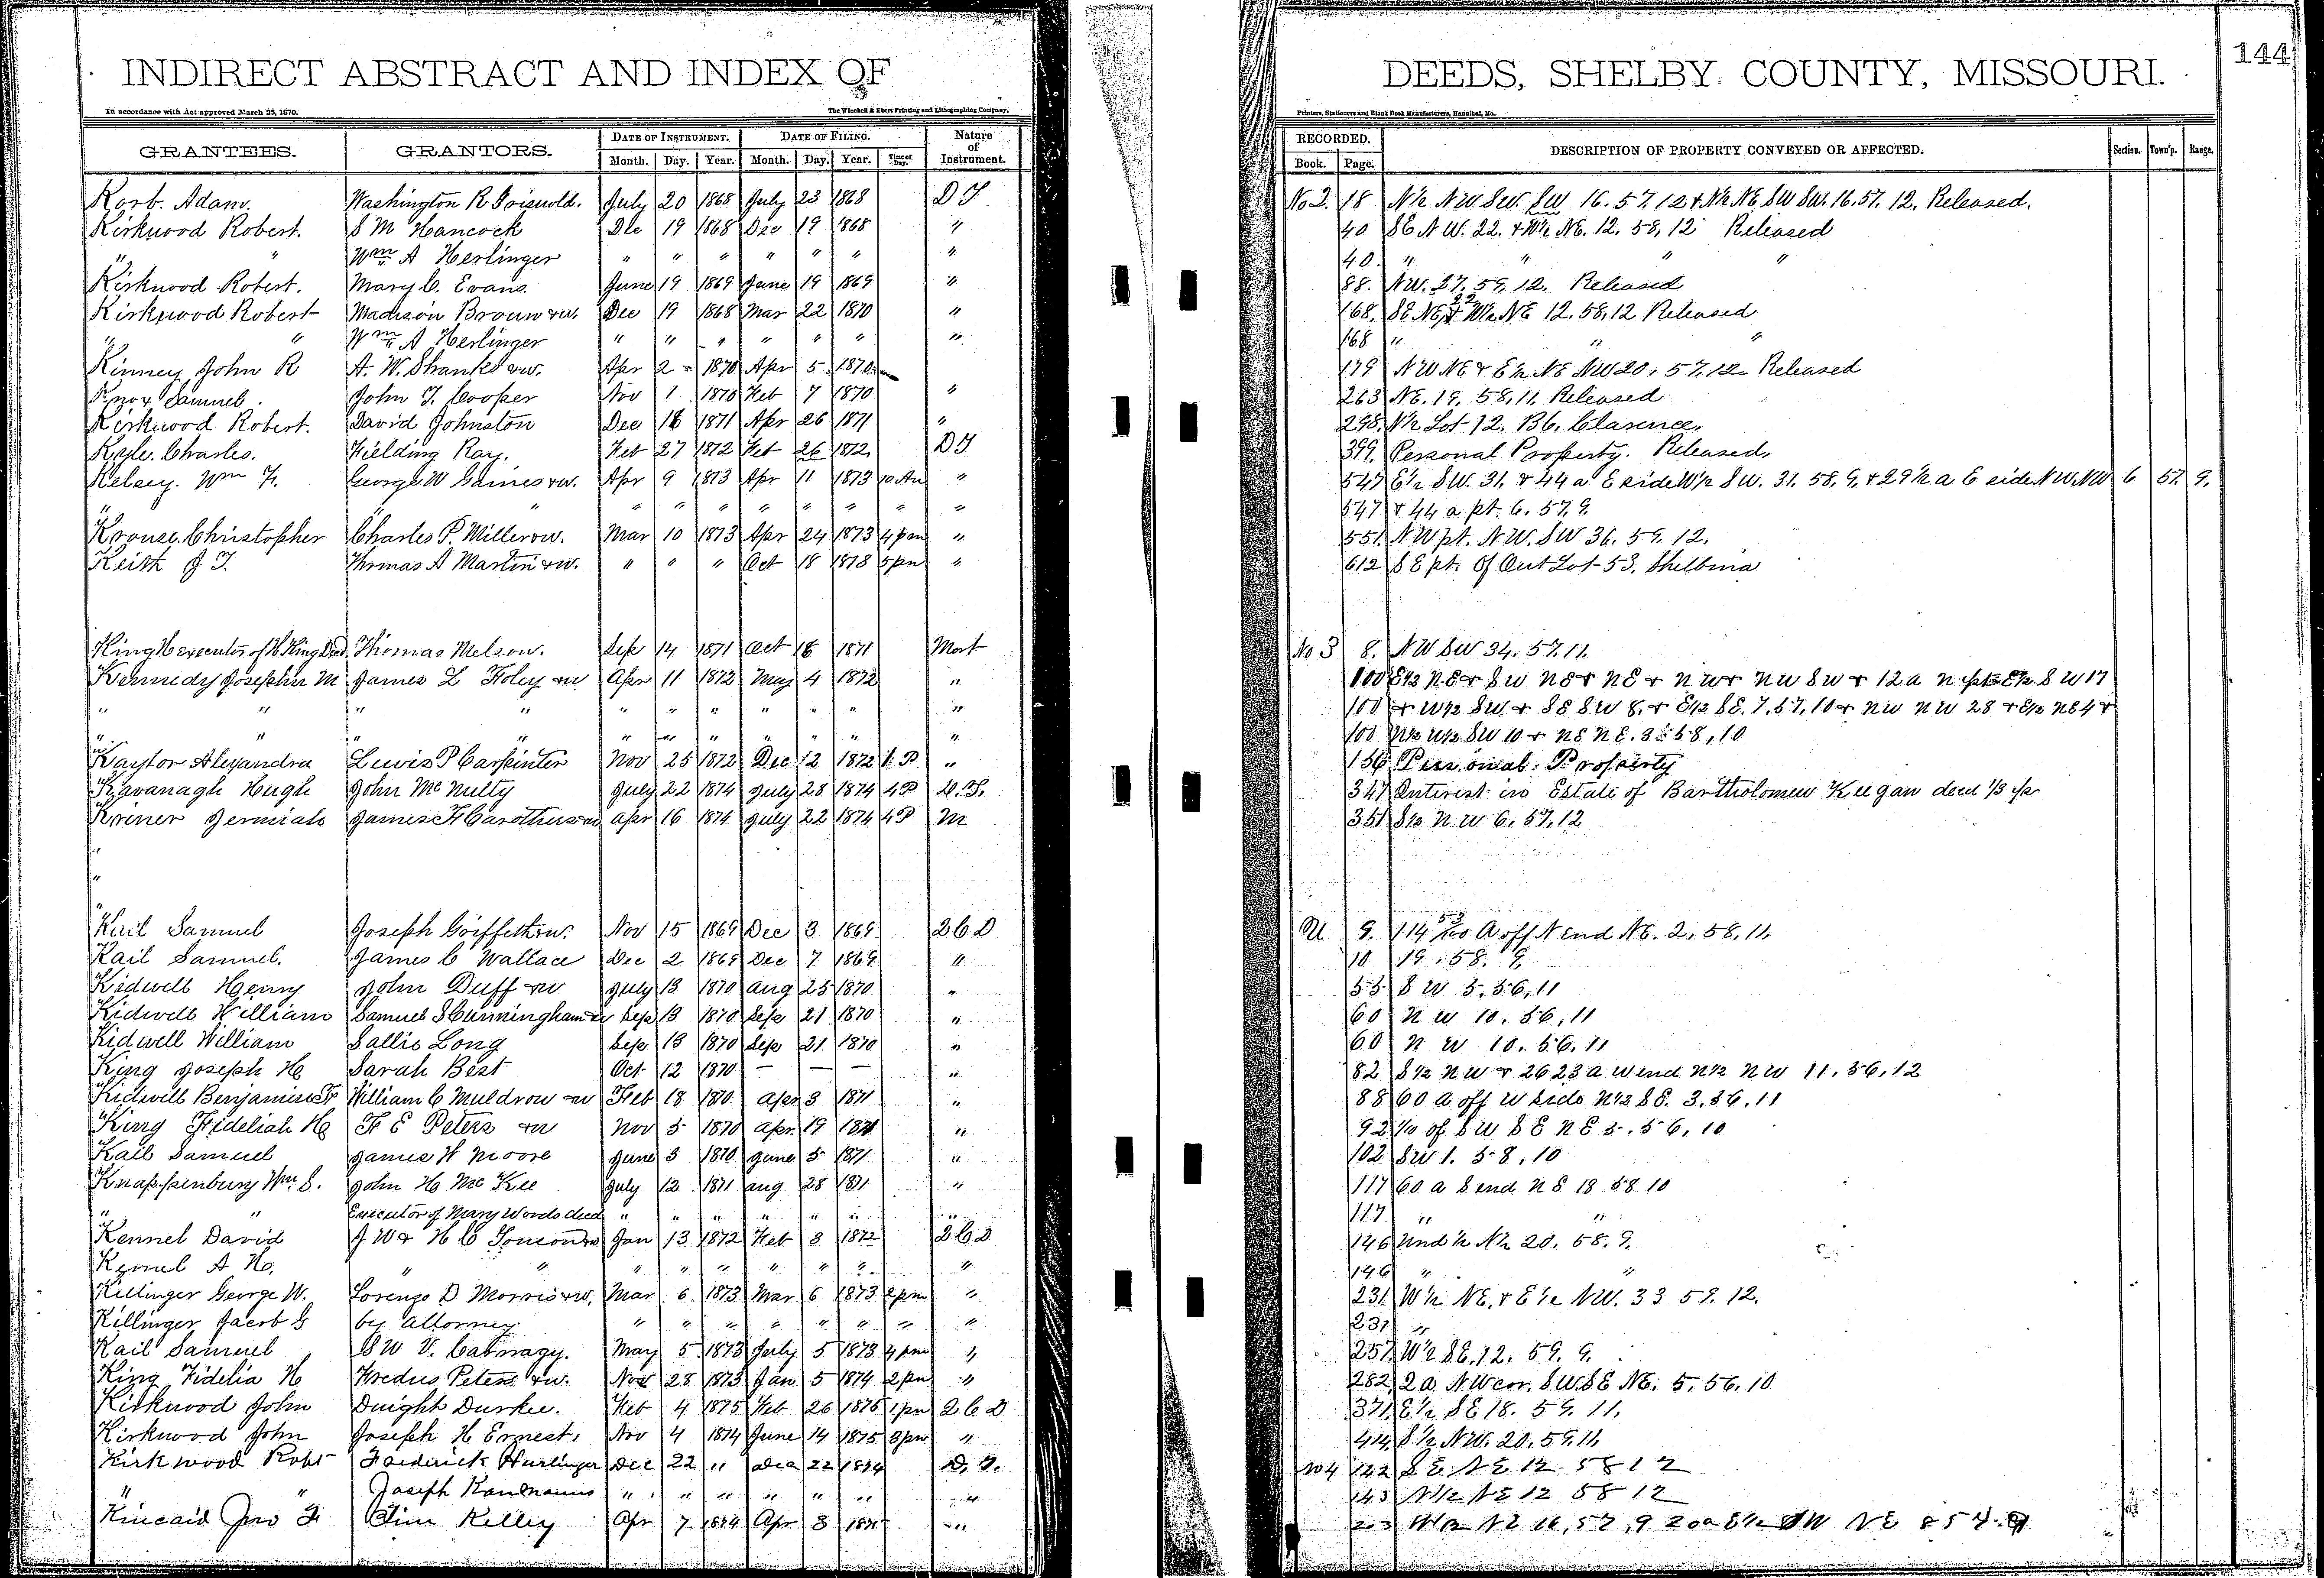 INDIRECT ABSTRACT AND INDEX OF DEEDS, SHELBY COUNTY, MISSOURI. 144
In accordance with Act approved March 25, 1870. The Winchell & Ebert Printing and Lithographing Company, Printers, Stationers and Blank Book Manufacturers, Hannibal, Mo.
GRANTEES. GRANTORS. DATE OF INSTRUMENT. DATE OF FILING. Nature of Instrument. RECORDED. DESCRIPTION OF PROPERTY CONVEYED OR AFFECTED. Section. Town'p. Range.
Month. Day. Year. Month. Day. Year. Time of Day. Book. Page.
Korb. Adam. Washington R Griswold. July 20 1868 July 23 1868 D T No 2. 18 N½ NW SW. SW 16. 57. 12 & N½ NE SW SW. 16. 57. 12. Released.
Kirkwood Robert. S M Hancock Dec 19 1868 Dec 19 1868 " 40 SE NW. 22. & W½ NE. 12. 58, 12 Released
" " Wm A Herlinger " " " " " " " 40. " " " "
Kirkwood Robert. Mary C. Evans. June 19 1869 June 19 1869 " 88. NW. 27. 59, 12. Released
Kirkwood Robert Madison Brown & w. Dec 19 1868 Mar 22 1870 " 168. SE NE, 22 & W½ NE 12. 58, 12 Released
" " Wm A Herlinger " " " " " " " 168 " " "
Kinney John R A. W. Shanks & w. Apr 2 1870 Apr 5 1870 179 NW NE & E½ NE NW 20, 57, 12. Released
Knox Samuel. John T. Cooper Nov 1 1870 Feb 7 1870 " 263 NE. 19, 58, 11. Released
Kirkwood Robert. David Johnston Dec 16 1871 Apr 26 1871 " 298. N½ Lot 12. B6. Clarence.
Kyle. Charles. Fielding Ray. Feb 27 1872 Feb 26 1872 D T 399. Personal Property. Released.
Kelsey. Wm F. George W Gaines & w. Apr 9 1873 Apr 11 1873 10 Am " 547 E½ SW. 31. & 44 a E side W½ SW. 31. 58. 9. & 29½ a E side NW NW 6 57. 9.
" " " " " " " " " 547 & 44 a pt. 6. 57. 9.
Krouse. Christopher Charles P. Miller & w. Mar 10 1873 Apr 24 1873 4 pm " 551. NW pt. NW. SW 36. 59. 12.
Keith J T. Thomas A Martin & w. " " " Oct 18 1873 5 pm " 612 SE pt. of Out Lot 53. Shelbina
King H executor of H King Decd. Thomas Melson. Sep 14 1871 Oct 16 1871 Mort No 3 8. NW SW 34. 57. 11.
Kennedy Josephin M James L Foley & w Apr 11 1872 May 4 1872 " 100 E½ NE & SW NE & NE & NW & NW SW & 12 a N pt E½ SW 17
" " " " " " " " " " " 100 & W½ SW. & SE SW 8. & E½ SE. 7. 57, 10 & NW NW 28 & E½ NE 4 &
" " " " " " " " " " " 100 N½ W½ SW 10 & NE NE. 3. 58, 10
Kaylor Alexandra Lewis P Carpinter Nov 25 1872 Dec 12 1872 1. P " 156 Personal Property
Kavanagh Hugh John McNulty July 22 1874 July 28 1874 4 P D. T. 347 Interest in Estate of Bartholomew Keegan decd 1/3 pr
Kriner Jermiah James H Carothers & w Apr 16 1874 July 22 1874 4 P M 351 S½ NW 6, 57, 12
"
"
"
Kail Samuel Joseph Griffith & w. Nov 15 1869 Dec 3 1869 2 C D U 9. 114 53/100 A off N end NE. 2, 58, 11,
Kail Samuel. James C Wallace Dec 2 1869 Dec 7 1869 " 10 19. 58. 9,
Kidwell Henry John Duff & w July 13 1870 Aug 25 1870 " 55 SW 5, 56, 11
Kidwell William Samuel S Cunningham & w Sep 13 1870 Sep 21 1870 " 60 NW 10, 56, 11
Kidwell William Sallie Long Sep 13 1870 Sep 21 1870 " 60 NW 10. 56, 11
King Joseph H Sarah Best Oct 12 1870 — — — " 82 S½ NW & 26 23 a W end N½ NW 11, 56, 12
Kidwell Benjamin F William C Muldrow & w Feb 18 1870 Apr 3 1871 " 88 60 A off W side N½ SE. 3. 56, 11
King Fideliah H F E Peters & w Nov 5 1870 Apr. 19 1871 " 92 1/10 of SW SE NE 5. 56, 10
Kail Samuel James W Moore June 3 1870 June 5 1871 " 102 SW 1. 58, 10
Knappenbury Wm. S. John H McKee July 12 1871 Aug 28 1871 " 117 60 a S end NE 18 58 10
" " Executor of Mary Woods decd " " " " " " " 117 " "
Kennel David J W & H C & w Jan 13 1872 Feb 3 1872 2 C D 146 Und ½ N½ 20. 58. 9.
Kennel A H. " " " " " " " " " 146 " "
Killinger George W. Lorenzo D Morris & w. Mar 6 1873 Mar 6 1873 2 pm " 231. W½ NE. & E½ NW. 33 59. 12.
Killinger Jacob G by attorney " " " " " " " " 231 "
Kail Samuel S W V. Carnagy. May 5 1873 July 5 1873 4 pm " 257. W½ SE. 12. 59. 9.
King Fidelia H Fredus Peters & w. Nov 28 1873 Jan 5 1874 2 pm " 282. 2 a NW cor. SW. SE NE. 5, 56, 10
Kirkwood John Dwight Durkee. Feb 4 1875 Feb 26 1875 1 pm 2 C D 371. E½ SE 18. 59. 11.
Kirkwood John Joseph H Ernest, Nov 4 1874 June 14 1875 3 pm " 414. S½ NW. 20. 59. 11.
Kirkwood Robt Frederick Hurlinger Dec 22 " Dec 22 1874 D. T. No 4 142 SE NE 12. 58 12
" " Joseph " " " " " " " 143 N½ NE 12 58 12
Kincaid Jno F Tim Kelley Apr 7 1874 Apr 8 1875 " 203 W½ NE 16, 57, 9 20 a E½ SW NE 8 57. 9